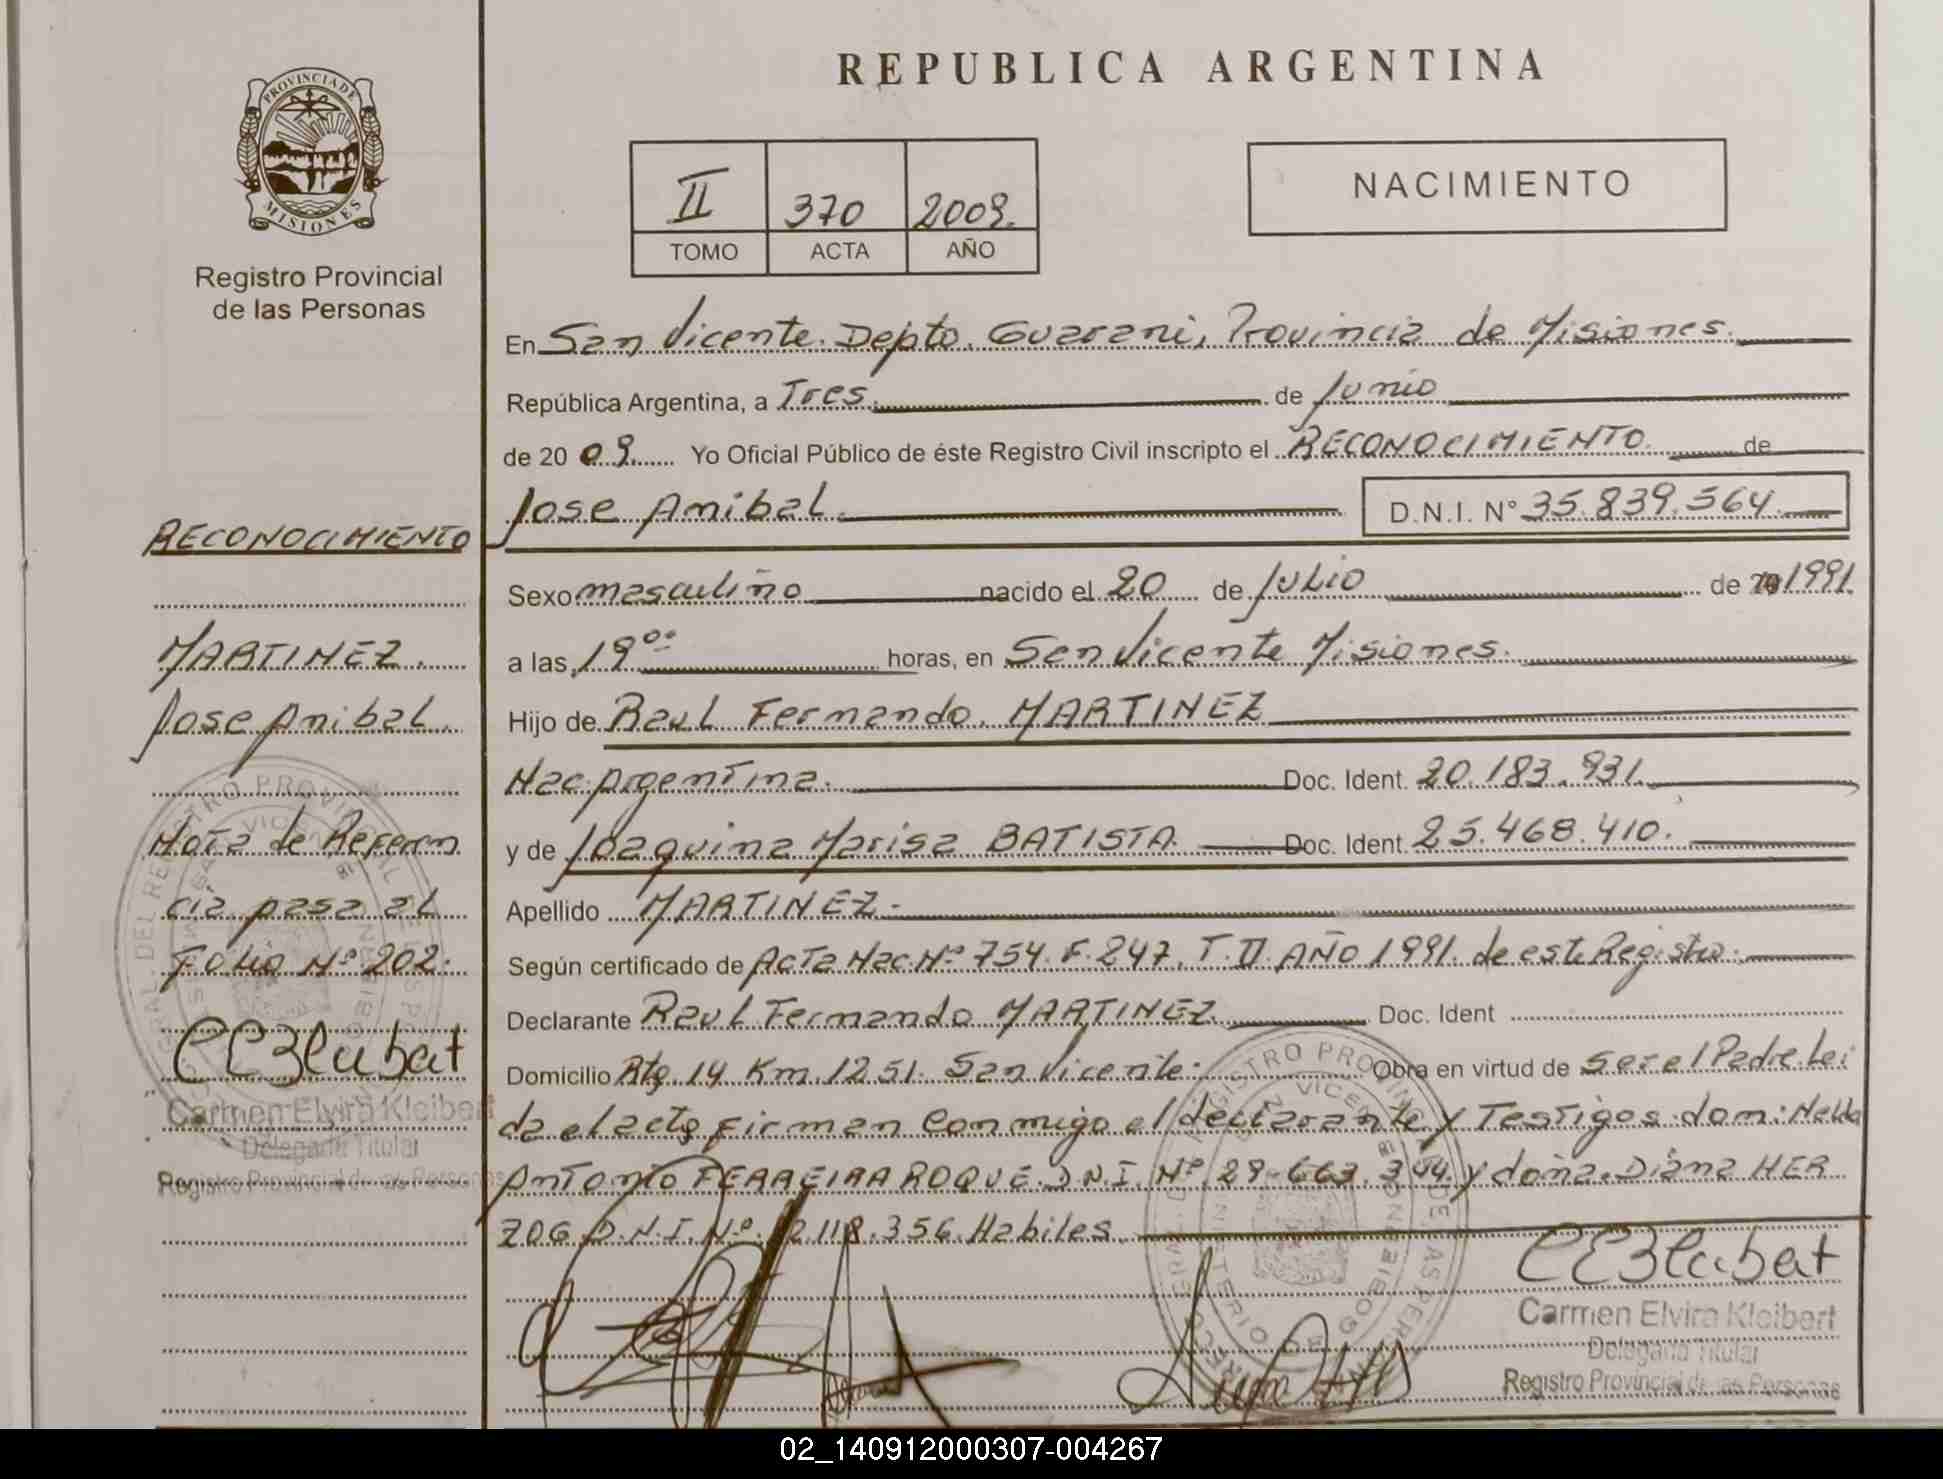 REPUBLICA ARGENTINA
PROVINCIA DE
MISIONES
Registro Provincial
de las Personas
II 370 2009.
TOMO ACTA AÑO
NACIMIENTO
En San Vicente. Depto. Guarani, Provincia de Misiones.
República Argentina, a Tres. de Junio
de 20 09. Yo Oficial Público de éste Registro Civil inscripto el RECONOCIMIENTO. de
Jose Anibal. D.N.I. N° 35.839.564.
Sexo masculino nacido el 20 de Julio de 1991.
a las 19°° horas, en San Vicente Misiones.
Hijo de Raul Fernando. MARTINEZ
Nac. Argentina. Doc. Ident. 20.183.931.
y de Joaquina Marisa BATISTA. Doc. Ident. 25.468.410.
Apellido MARTINEZ.
Según certificado de Acta Nac. N° 754. F. 247. T. II. AÑO 1991. de este Registro.
Declarante Raul Fernando MARTINEZ. Doc. Ident
Domicilio Rta. 14 Km 1251. San Vicente. Obra en virtud de ser el Padre. Lei
da el acta firman Conmigo el declarante y Testigos. don:
Antonio FERREIRA ROQUE. D.N.I. N° 29.663.344. y doña. Diana HER
ZOG D.N.I. N° 118.356. Habiles.
Carmen Elvira Kleibert
Delegada Titular
Registro Provincial de las Personas
RECONOCIMIENTO
MARTINEZ.
Jose Anibal.
Nota de Referen
cia pasa al
Folio N° 202.
Carmen Elvira Kleibert
Delegada Titular
Registro Provincial de las Personas
02_140912000307-004267